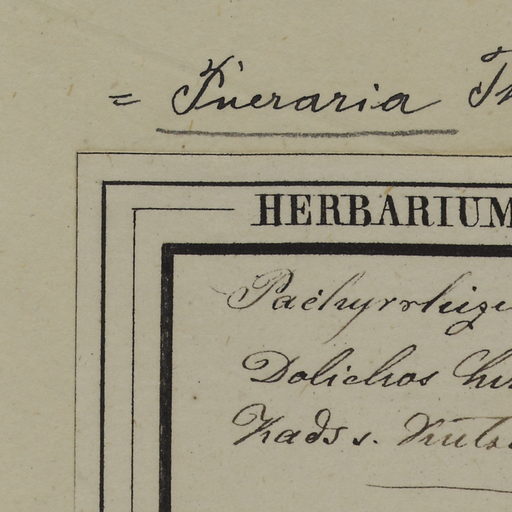 = Pueraria Th
HERBARIUM
Pachyrrhize
Dolichos hir
Kads s.